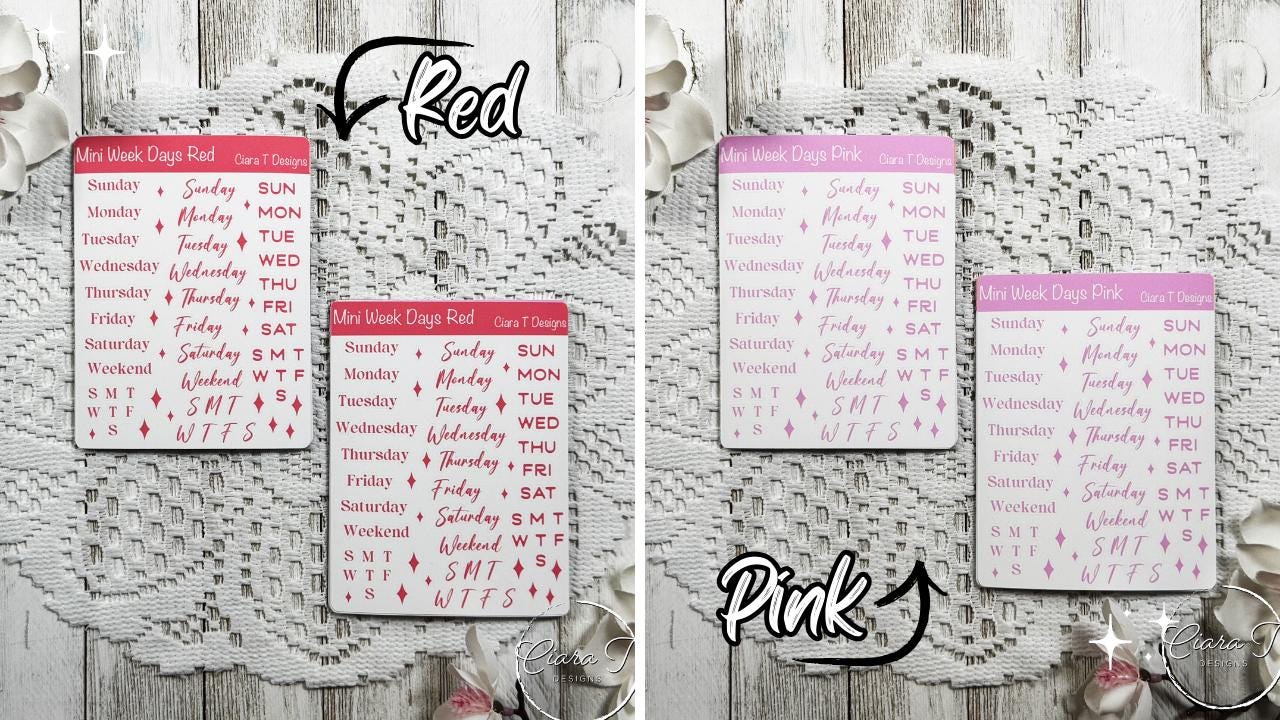 Red
Mini Week Days Red Ciara T Designs
Sunday
Monday
Tuesday
Wednesday
Thursday
Friday
Saturday
Weekend
S M T
W T F
S
Sunday
Monday
Tuesday
Wednesday
Thursday
Friday
Saturday
Weekend
S M T
W T F S
SUN
MON
TUE
WED
THU
FRI
SAT
S M T
W T F
S
Mini Week Days Red Ciara T Designs
Sunday
Monday
Tuesday
Wednesday
Thursday
Friday
Saturday
Weekend
S M T
W T F
S
Sunday
Monday
Tuesday
Wednesday
Thursday
Friday
Saturday
Weekend
S M T
W T F S
SUN
MON
TUE
WED
THU
FRI
SAT
S M T
W T F
S
Ciara T
DESIGNS
Mini Week Days Pink Ciara T Designs
Sunday
Monday
Tuesday
Wednesday
Thursday
Friday
Saturday
Weekend
S M T
W T F
S
Sunday
Monday
Tuesday
Wednesday
Thursday
Friday
Saturday
Weekend
S M T
W T F S
SUN
MON
TUE
WED
THU
FRI
SAT
S M T
W T F
S
Mini Week Days Pink Ciara T Designs
Sunday
Monday
Tuesday
Wednesday
Thursday
Friday
Saturday
Weekend
S M T
W T F
S
Sunday
Monday
Tuesday
Wednesday
Thursday
Friday
Saturday
Weekend
S M T
W T F S
SUN
MON
TUE
WED
THU
FRI
SAT
S M T
W T F
S
Pink
Ciara T
DESIGNS